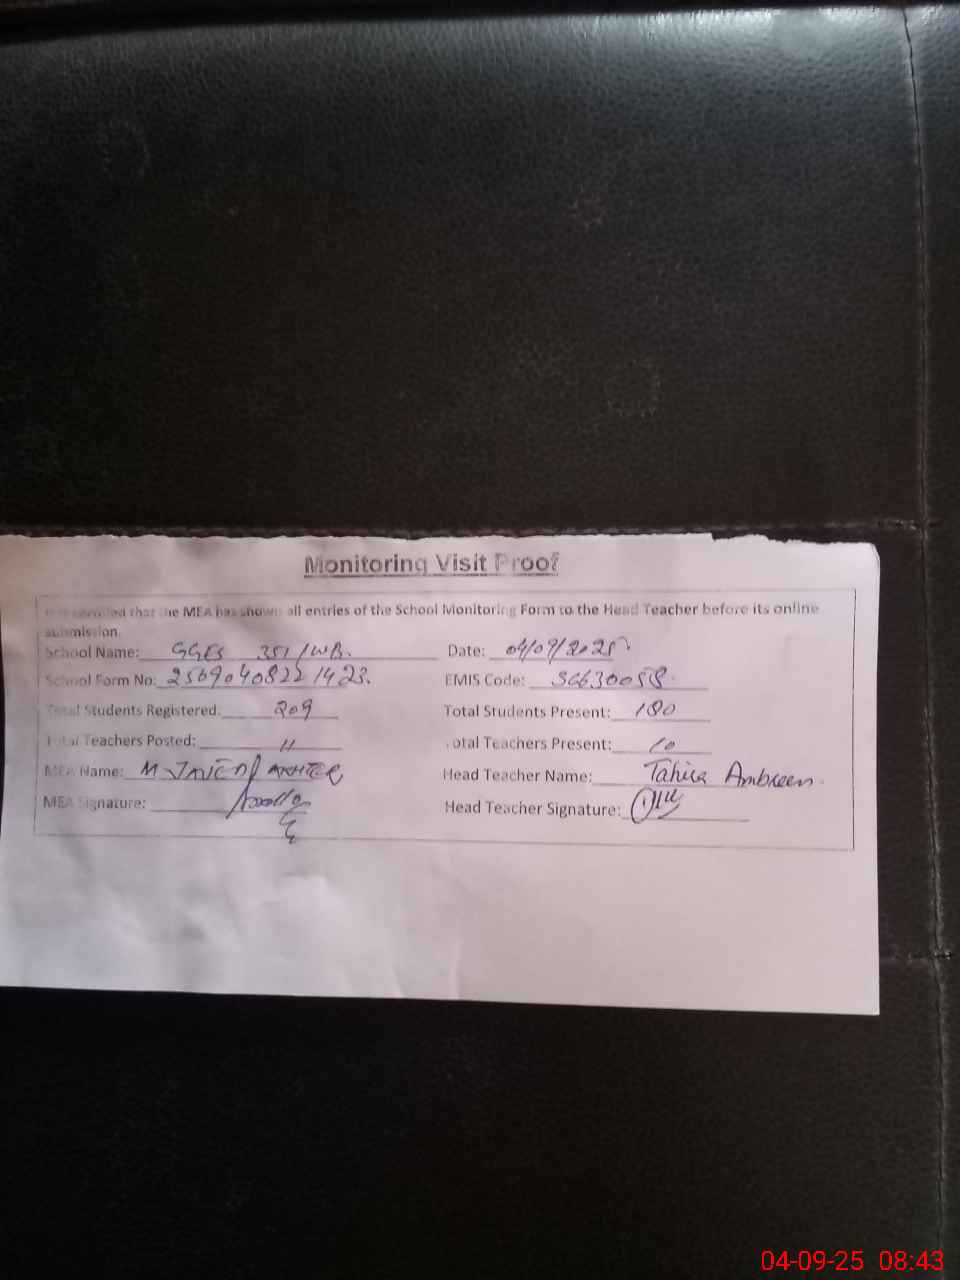 Monitoring Visit Proof
It is certified that the MEA has shown all entries of the School Monitoring Form to the Head Teacher before its online
submission.
School Name: GGES 351/WB. Date: 04/09/2025
School Form No: 25090408221423. EMIS Code: 36630058
Total Students Registered: 209 Total Students Present: 180
Total Teachers Posted: 11 Total Teachers Present: 10
MEA Name: M JAVED AKHTER Head Teacher Name: Tahira Ambreen.
MEA Signature: Head Teacher Signature:
04-09-25 08:43